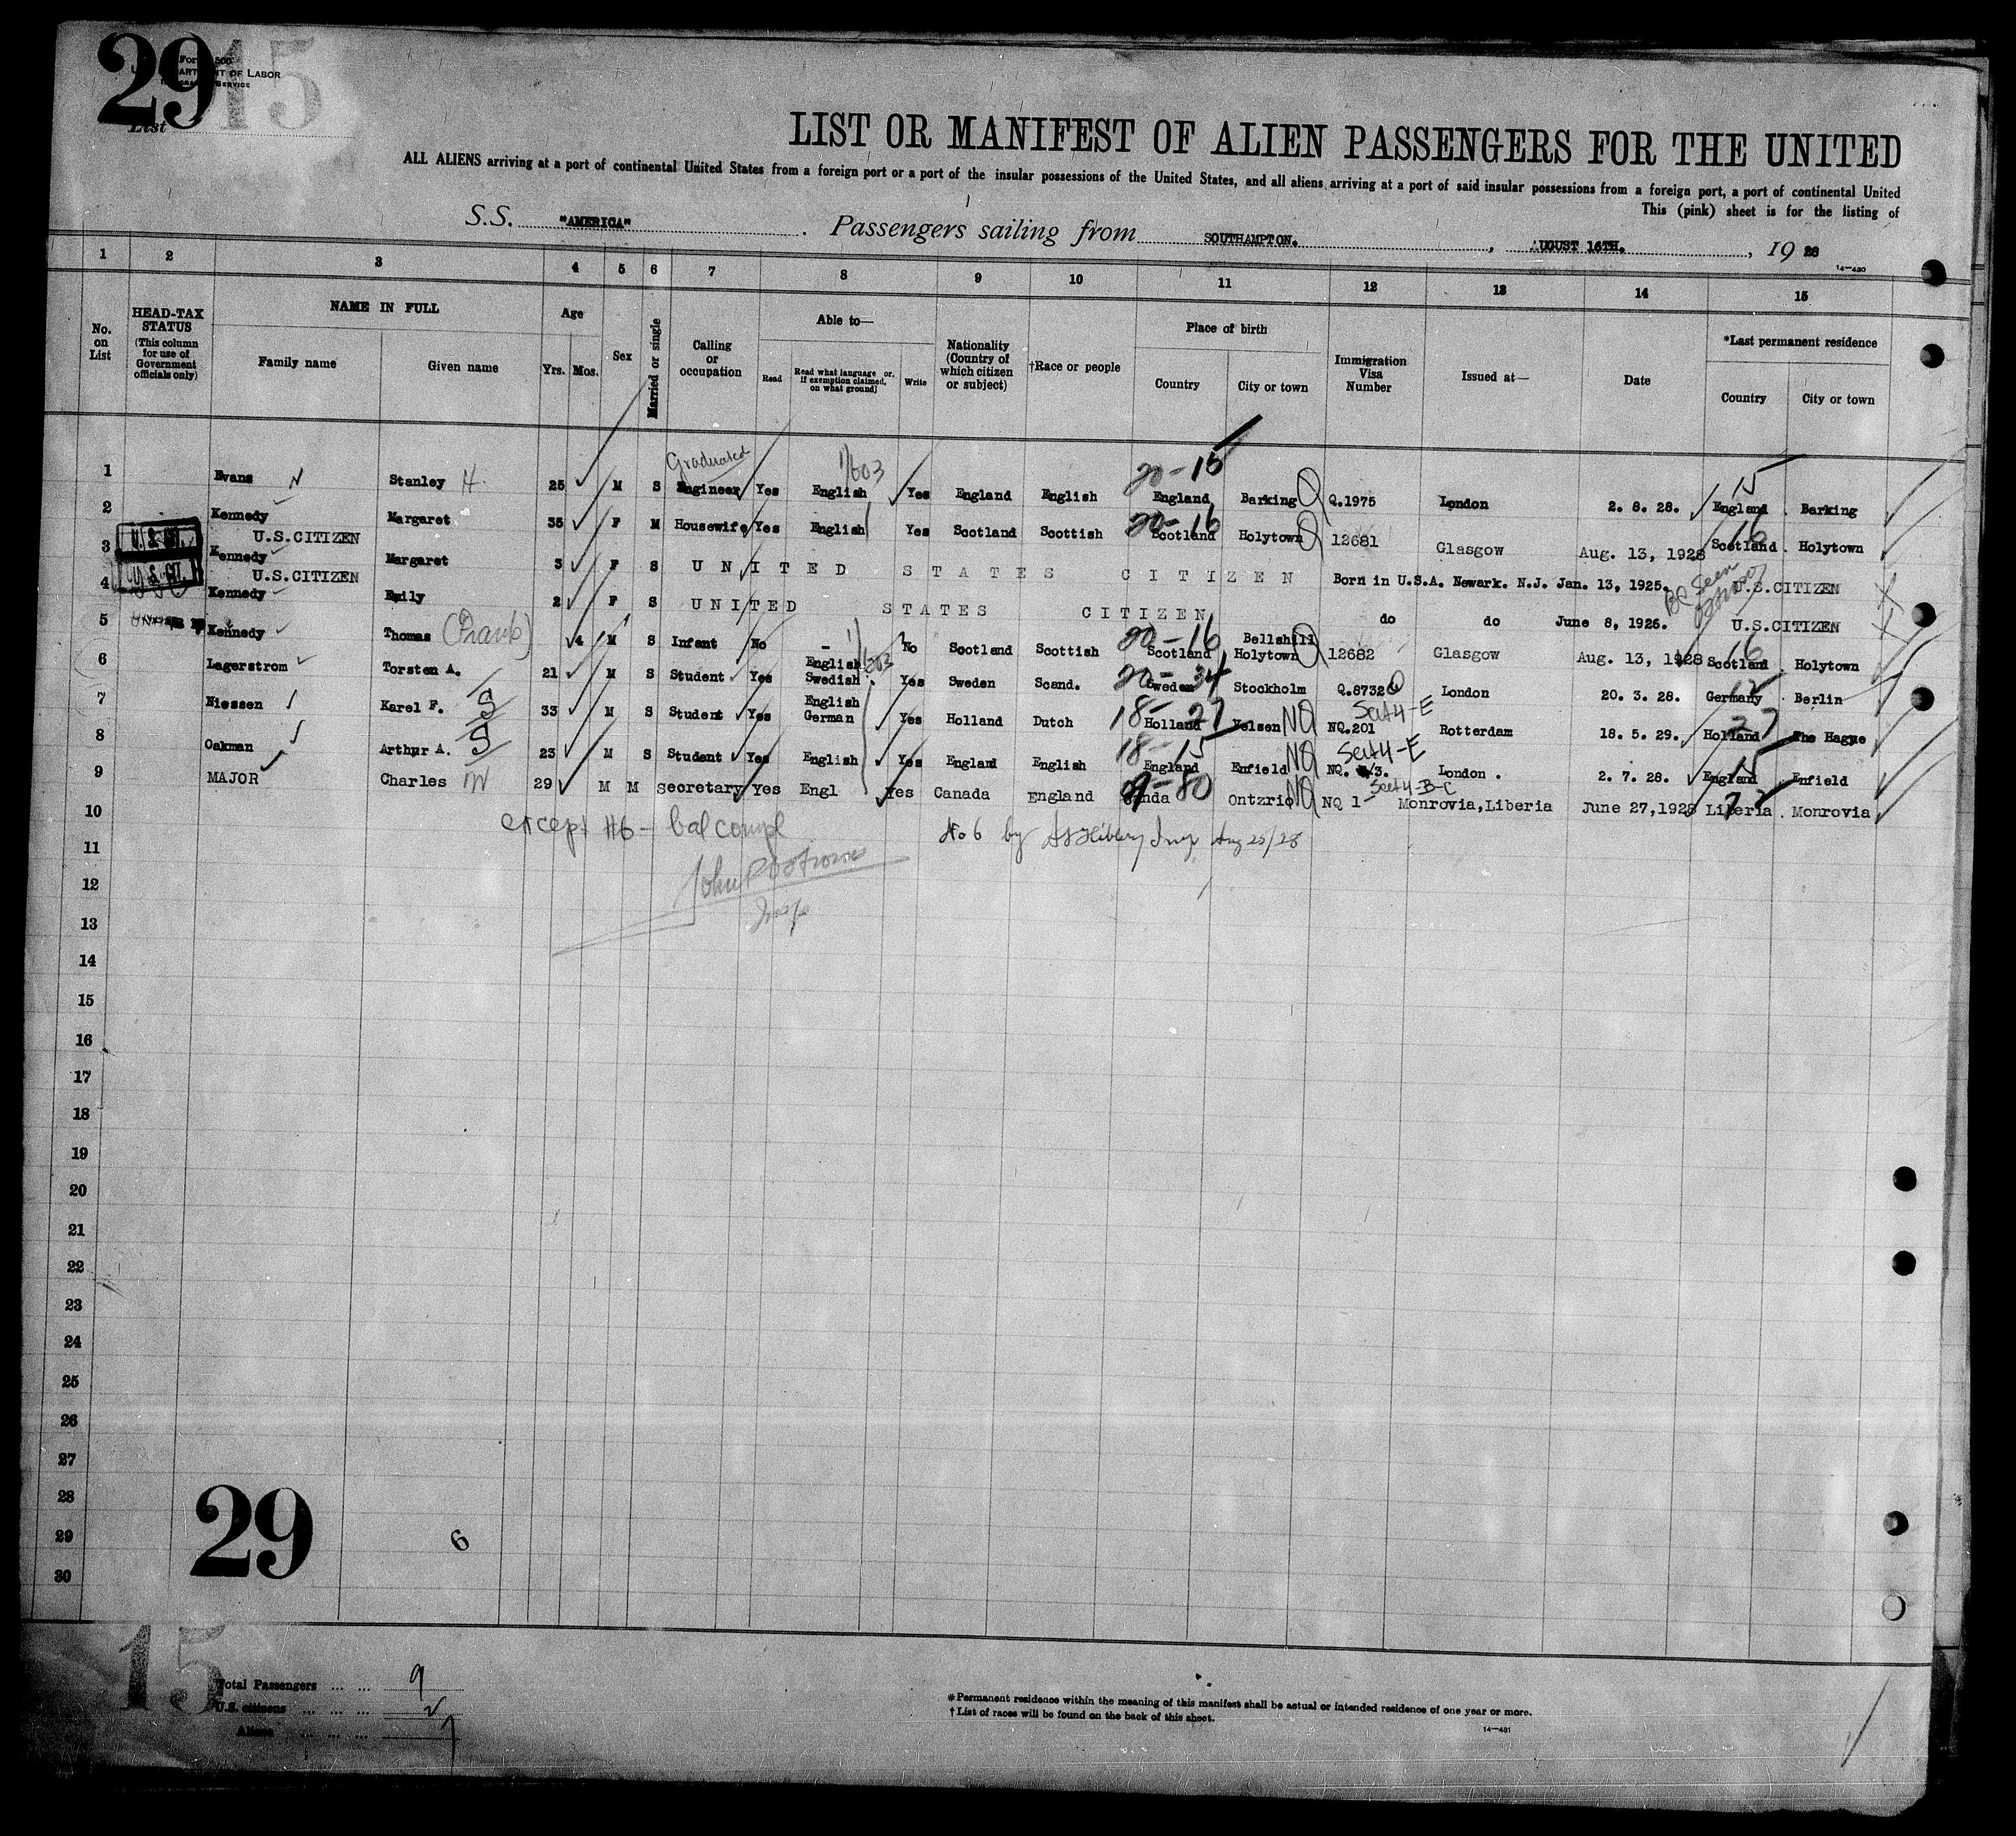 29 15
Form 500
U.S. DEPARTMENT OF LABOR
IMMIGRATION SERVICE
List
LIST OR MANIFEST OF ALIEN PASSENGERS FOR THE UNITED
ALL ALIENS arriving at a port of continental United States from a foreign port or a port of the insular possessions of the United States, and all aliens arriving at a port of said insular possessions from a foreign port, a port of continental United
This (pink) sheet is for the listing of
S.S. "AMERICA" . Passengers sailing from SOUTHAMPTON. , AUGUST 16TH. , 19 28
14—430
1 2 3 4 5 6 7 8 9 10 11 12 13 14 15
No. on List
HEAD-TAX STATUS
(This column for use of Government officials only)
NAME IN FULL
Family name Given name
Age
Yrs. Mos.
Sex
Married or single
Calling or occupation
Able to—
Read Read what language [or, if exemption claimed, on what ground] Write
Nationality (Country of which citizen or subject)
†Race or people
Place of birth
Country City or town
Immigration Visa Number
Issued at—
Date
*Last permanent residence
Country City or town
Graduated 1/603 20-15 15
1 Evans N Stanley H. 25 M S Engineer Yes English Yes England English England Barking Q Q.1975 London 2. 8. 28. England Barking
2 Kennedy Margaret 35 F M Housewife Yes English Yes Scotland Scottish 20-16 Scotland Holytown Q 12681 Glasgow Aug. 13, 1928 16 Scotland. Holytown
U.S. CIT. U.S.CITIZEN
3 Kennedy Margaret 3 F S UNITED STATES CITIZEN Born in U.S.A. Newark. N.J. Jan. 13, 1925. BC seen U.S.CITIZEN
U.S. CIT. U.S.CITIZEN
4 Kennedy Emily 2 F S UNITED STATES CITIZEN do do June 8, 1926. U.S.CITIZEN
5 Kennedy Thomas 4 M S Infant No - No Scotland Scottish 20-16 Scotland Bellshill Holytown Q 12682 Glasgow Aug. 13, 1928 16 Scotland Holytown
6 Lagerstrom Torsten A. 21 M S Student Yes English Swedish Yes Sweden Scand. 20-34 Sweden Stockholm Q.8732 Q London 20. 3. 28. Germany Berlin
7 Niessen Karel F. S 33 M S Student Yes English German Yes Holland Dutch 18-27 Holland Velsen NQ NQ.201 Sect 4-E Rotterdam 18. 5. 29. 27 Holland The Hague
8 Oakman Arthur A. S 23 M S Student Yes English Yes England English 18-15 England Enfield NQ Sect 4-E London . 2. 7. 28. 15 England Enfield
9 MAJOR Charles W 29 M M secretary Yes Engl Yes Canada England Ontzrio NQ NQ 1- Sect 4-B-C Monrovia,Liberia June 27,1928 Liberia . Monrovia
10 except #6 - bal compl No 6 by
11
12
13
14
15
16
17
18
19
20
21
22
23
24
25
26
27
28
29
30
29 6
15
Total Passengers ... ... 9
U.S. citizens ... ... ... 2
Aliens ... ... ... 7
*Permanent residence within the meaning of this manifest shall be actual or intended residence of one year or more.
†List of races will be found on the back of this sheet.
14—431